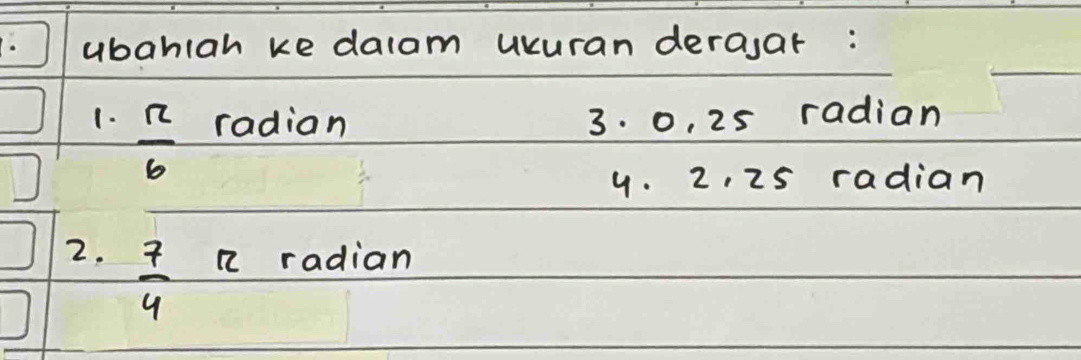 1. ubahlah ke dalam ukuran derajat :
1. π/6 radian
3. 0,25 radian
4. 2,25 radian
2. 7/4 π radian